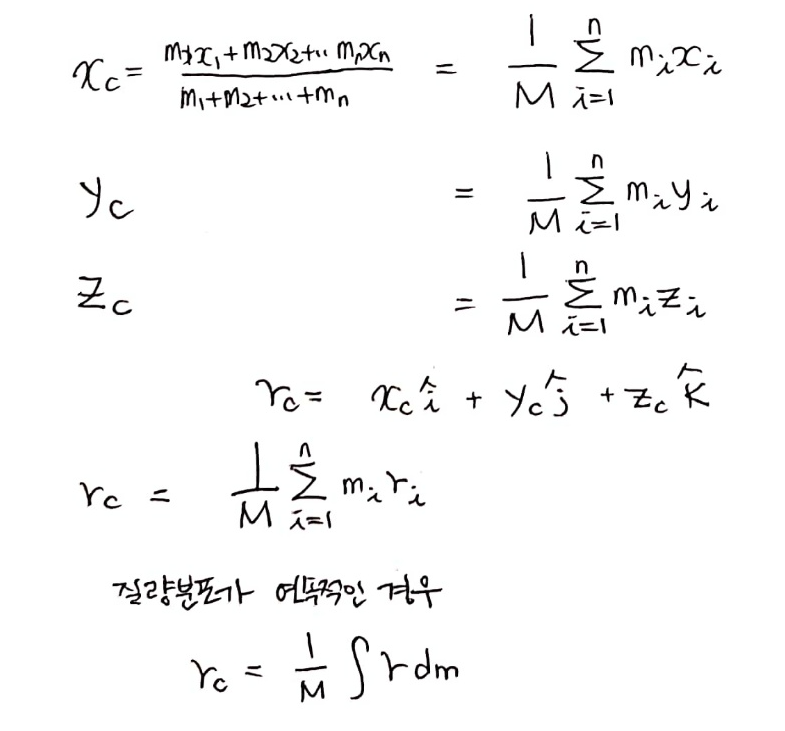 x_c = (m_1x_1+m_2x_2+.. m_nx_n)/(m_1+m_2+...+m_n) = 1/M Σ_{i=1}^{n} m_i x_i
y_c = 1/M Σ_{i=1}^{n} m_i y_i
z_c = 1/M Σ_{i=1}^{n} m_i z_i
r_c = x_c î + y_c ĵ + z_c k̂
r_c = 1/M Σ_{i=1}^{n} m_i r_i
질량분포가 연속적인 경우
r_c = 1/M ∫ r dm